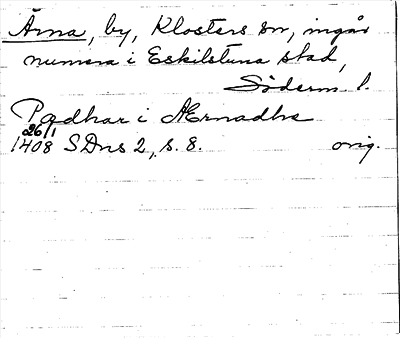 Ärna, by, Klosters sn, ingår
numera i Eskilstuna stad,
Söderm l.
Pædhar i Ærnadhe
26/1
1408 SDns 2, s. 8. orig.